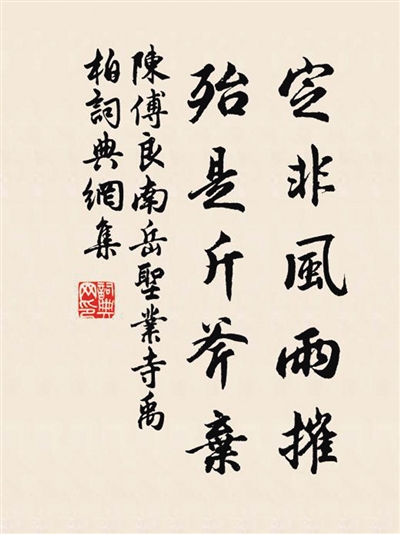 定非風雨摧
殆是斤斧棄
陳傅良南岳聖業寺禹
柏詞典網集
詞典网印